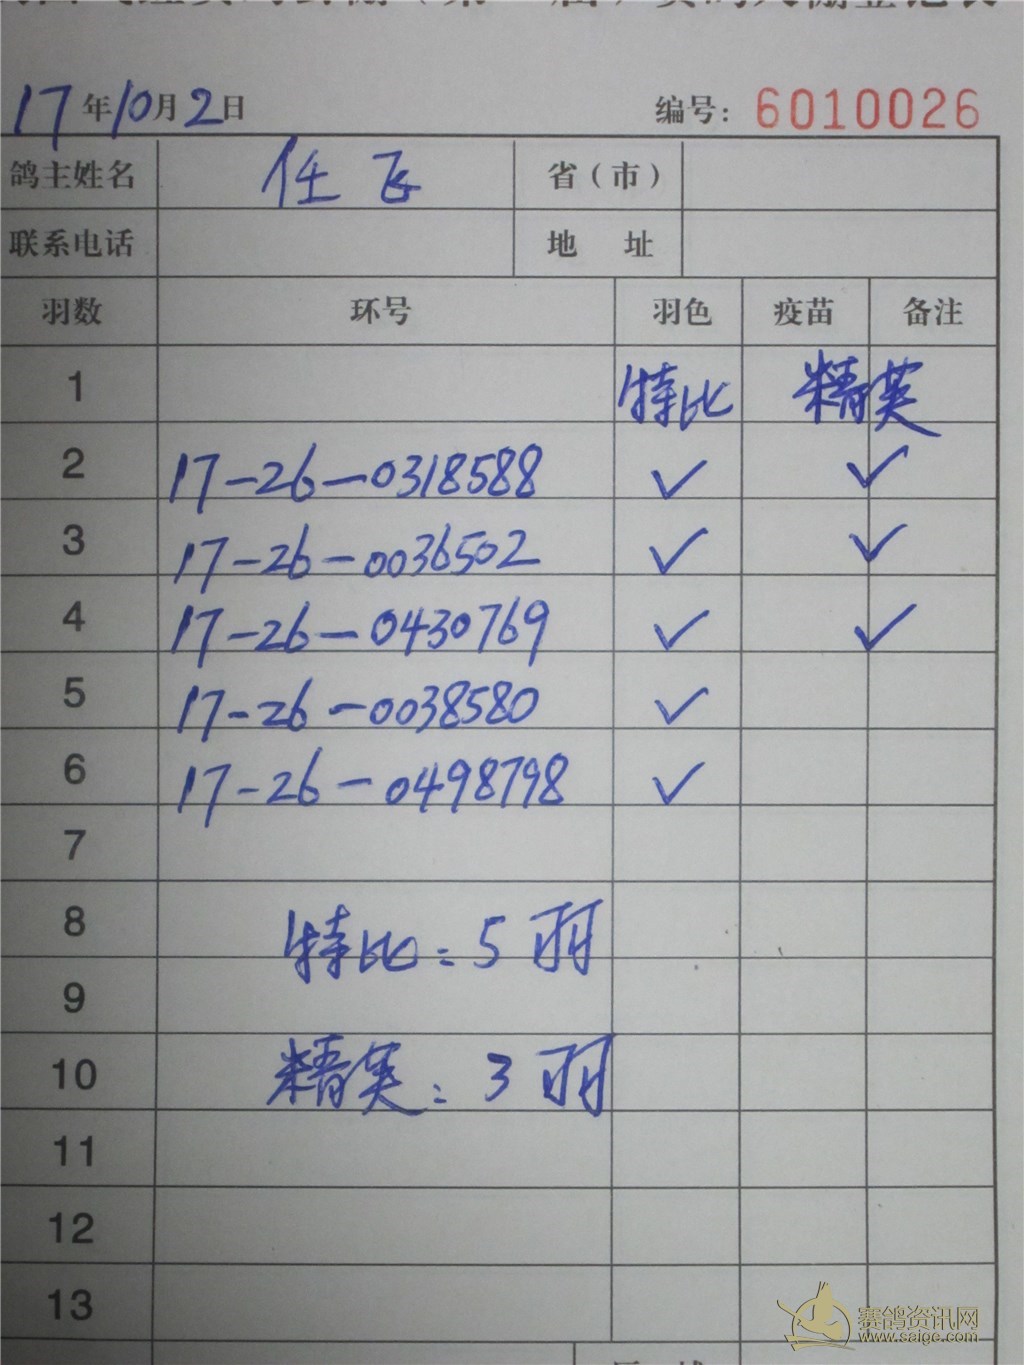 17年10月2日 编号: 6010026
鸽主姓名 任飞 省（市）
联系电话 地 址
羽数 环号 羽色 疫苗 备注
1 特比 精英
2 17-26-0318588 ✓ ✓
3 17-26-0036502 ✓ ✓
4 17-26-0430769 ✓ ✓
5 17-26-0038580 ✓
6 17-26-0498798 ✓
7
8 特比: 5羽
9
10 精英: 3羽
11
12
13
赛鸽资讯网
www.saige.com